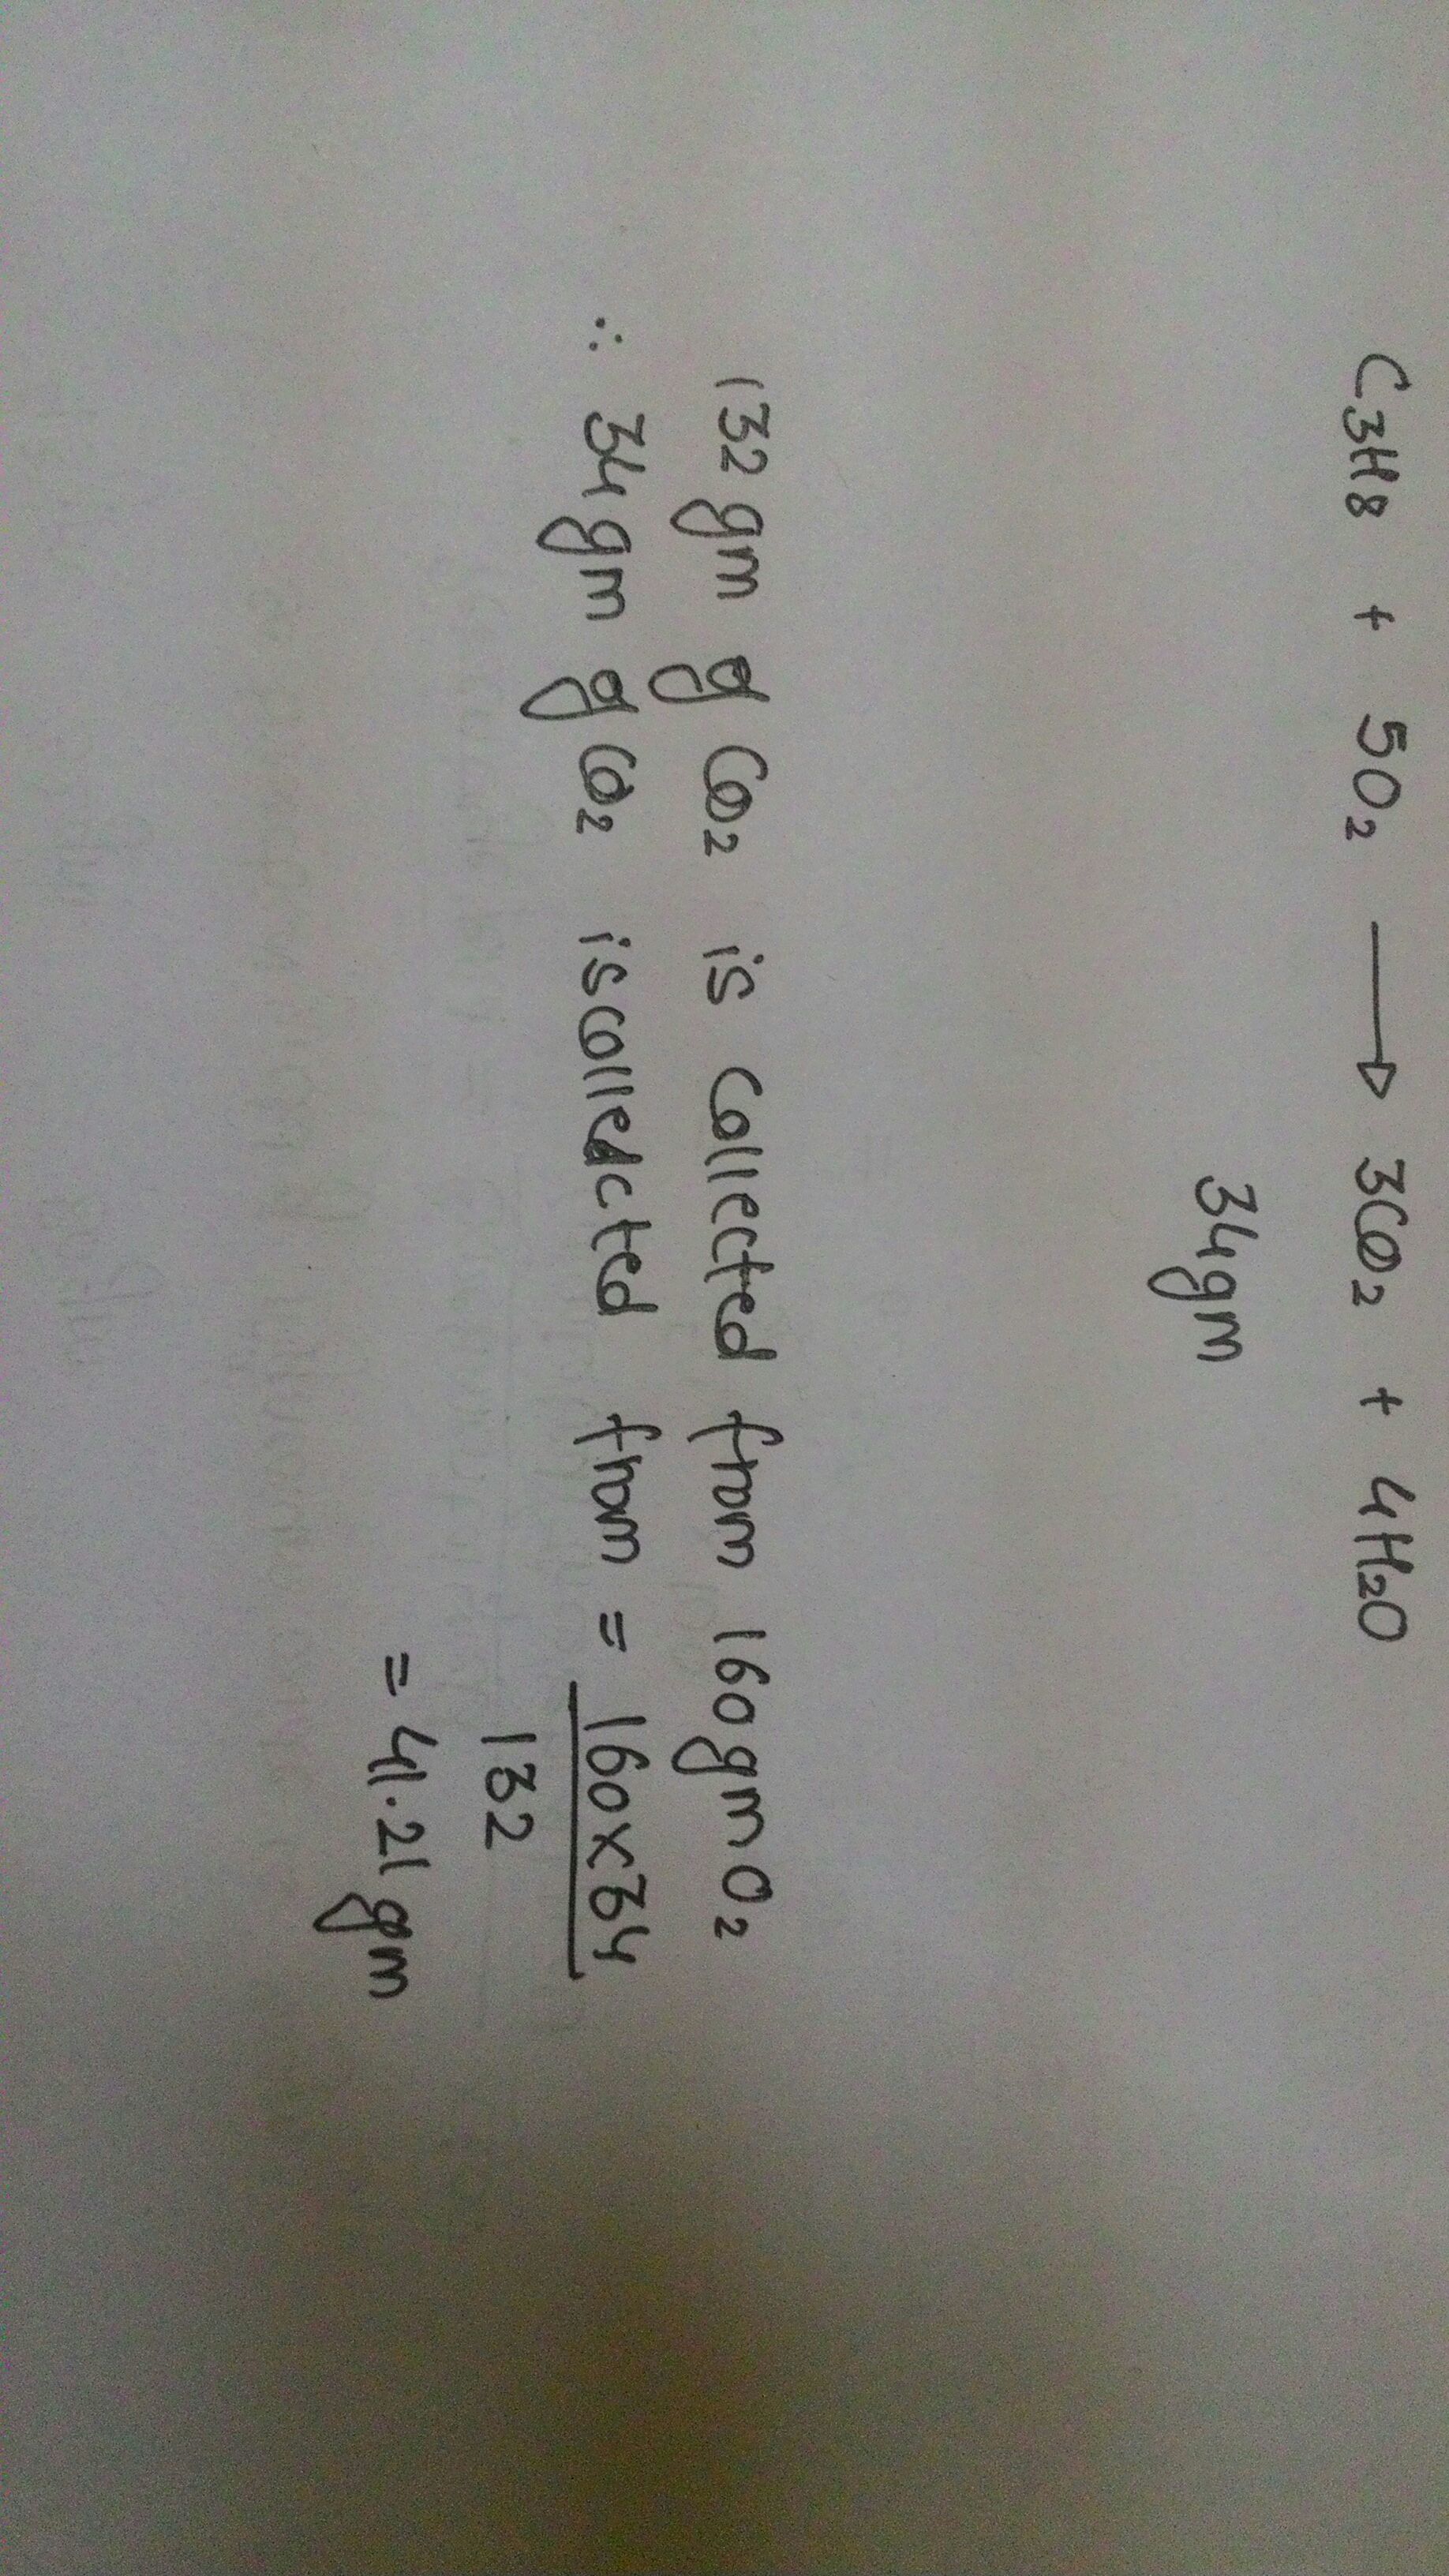 C3H8 + 5O2 → 3CO2 + 4H2O
34gm
132 gm of CO2 is collected from 160gm O2
∴ 34gm of CO2 is collected from = 160x34
132
= 41.21 gm